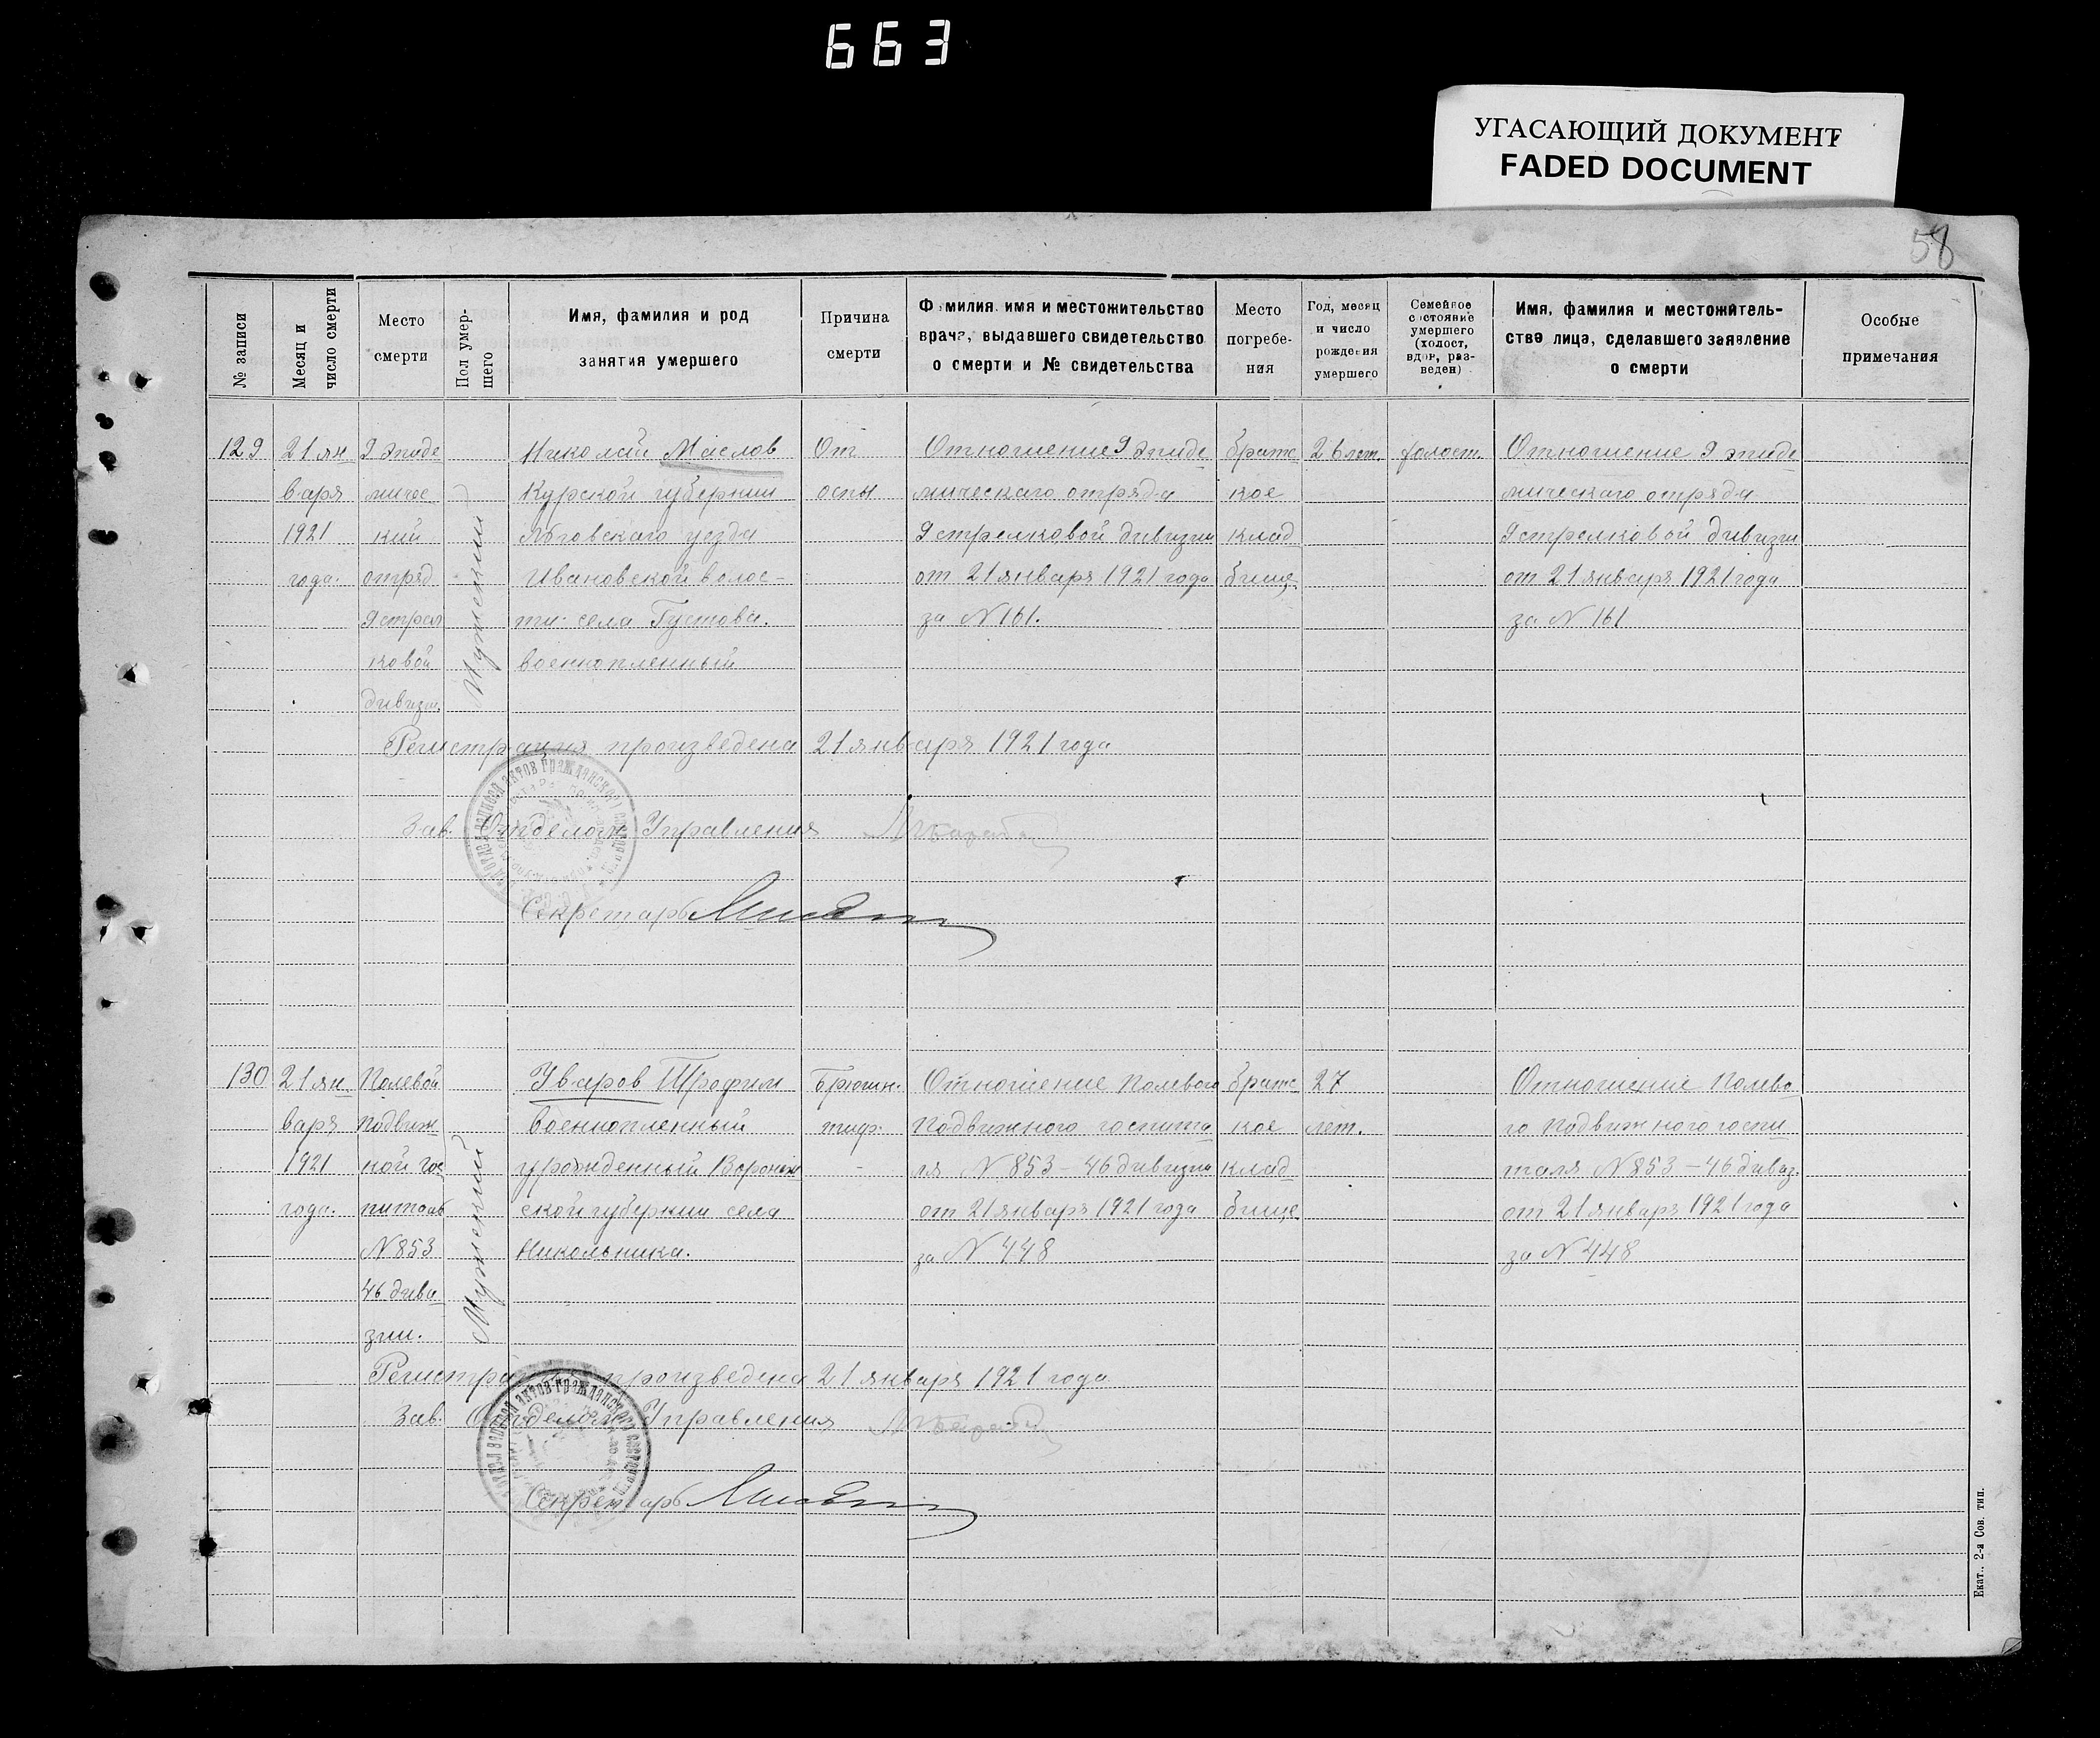 663
УГАСАЮЩИЙ ДОКУМЕНТ
FADED DOCUMENT
58
№ записи
Месяц и
число смерти
Место
смерти
Пол умер-
шего
Имя, фамилия и род
занятия умершего
Причина
смерти
Фамилия, имя и местожительство
врача, выдавшего свидетельство
о смерти и № свидетельства
Место
погребе-
ния
Год, месяц
и число
рождения
умершего
Семейное
состояние
умершего
(холост,
вдов, раз-
веден)
Имя, фамилия и местожитель-
ство лица, сделавшего заявление
о смерти
Особые
примечания
129
21 ян
варя
1921
года.
9 эпиде
мичес
кий
отряд
9 стрел
ковой
дивизи.
Мужеский
Николай Маслов
Курской губернии
Льговского уезда
Ивановской волос-
ти села Густова.
военнопленный
От
оспы
Отношение 9 эпиде
мическаго отряда
9 стрелковой дивизии
от 21 января 1921 года
за № 161.
братс
кое
клад
бище
26 лет.
холост.
Отношение 9 эпиде
мическаго отряда
9 стрелковой дивизии
от 21 января 1921 года
за № 161
Регистрация произведена 21 января 1921 года
Зав. Отделом Управления
Секретарь
130
21 ян
варя
1921
года.
Полевой
подвиж
ной гос
питаль
№ 853
46 диви
зии.
Мужеский
Уваров Трофим
военнопленный
урожденный Воронеж
ской губернии села
Никольника.
Брюшн.
тиф.
Отношение полевого
подвижного госпита
ля № 853 – 46 дивизии
от 21 января 1921 года
за № 448
братс
кое
клад
бище
27
лет.
Отношение полево
го подвижного госпи
таля № 853 – 46 дивиз.
от 21 января 1921 года
за № 448
Регистрация произведена 21 января 1921 года
Зав. Отделом Управления
Секретарь
Екат., 2-я Сов. тип.